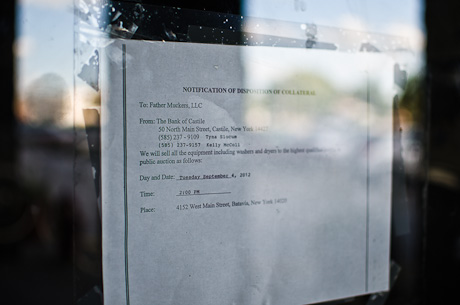 NOTIFICATION OF DISPOSITION OF COLLATERAL
To: Father Muckers, LLC
From: The Bank of Castile
50 North Main Street, Castile, New York 14427
(585) 237-9109 Tyna Slocum
(585) 237-9157 Kelly
We will sell all the equipment including washers and dryers to the highest
public auction as follows:
Day and Date: Tuesday September 4, 2012
Time: 2:00 PM
Place: 4152 West Main Street, Batavia, New York 14020